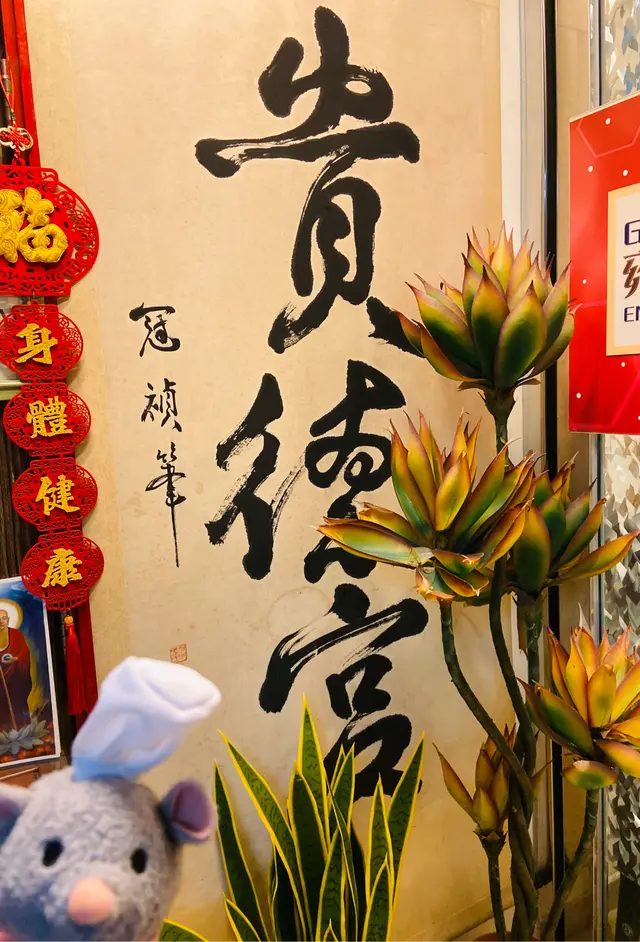 貴德宮
冠禎筆
福
身體健康
EN